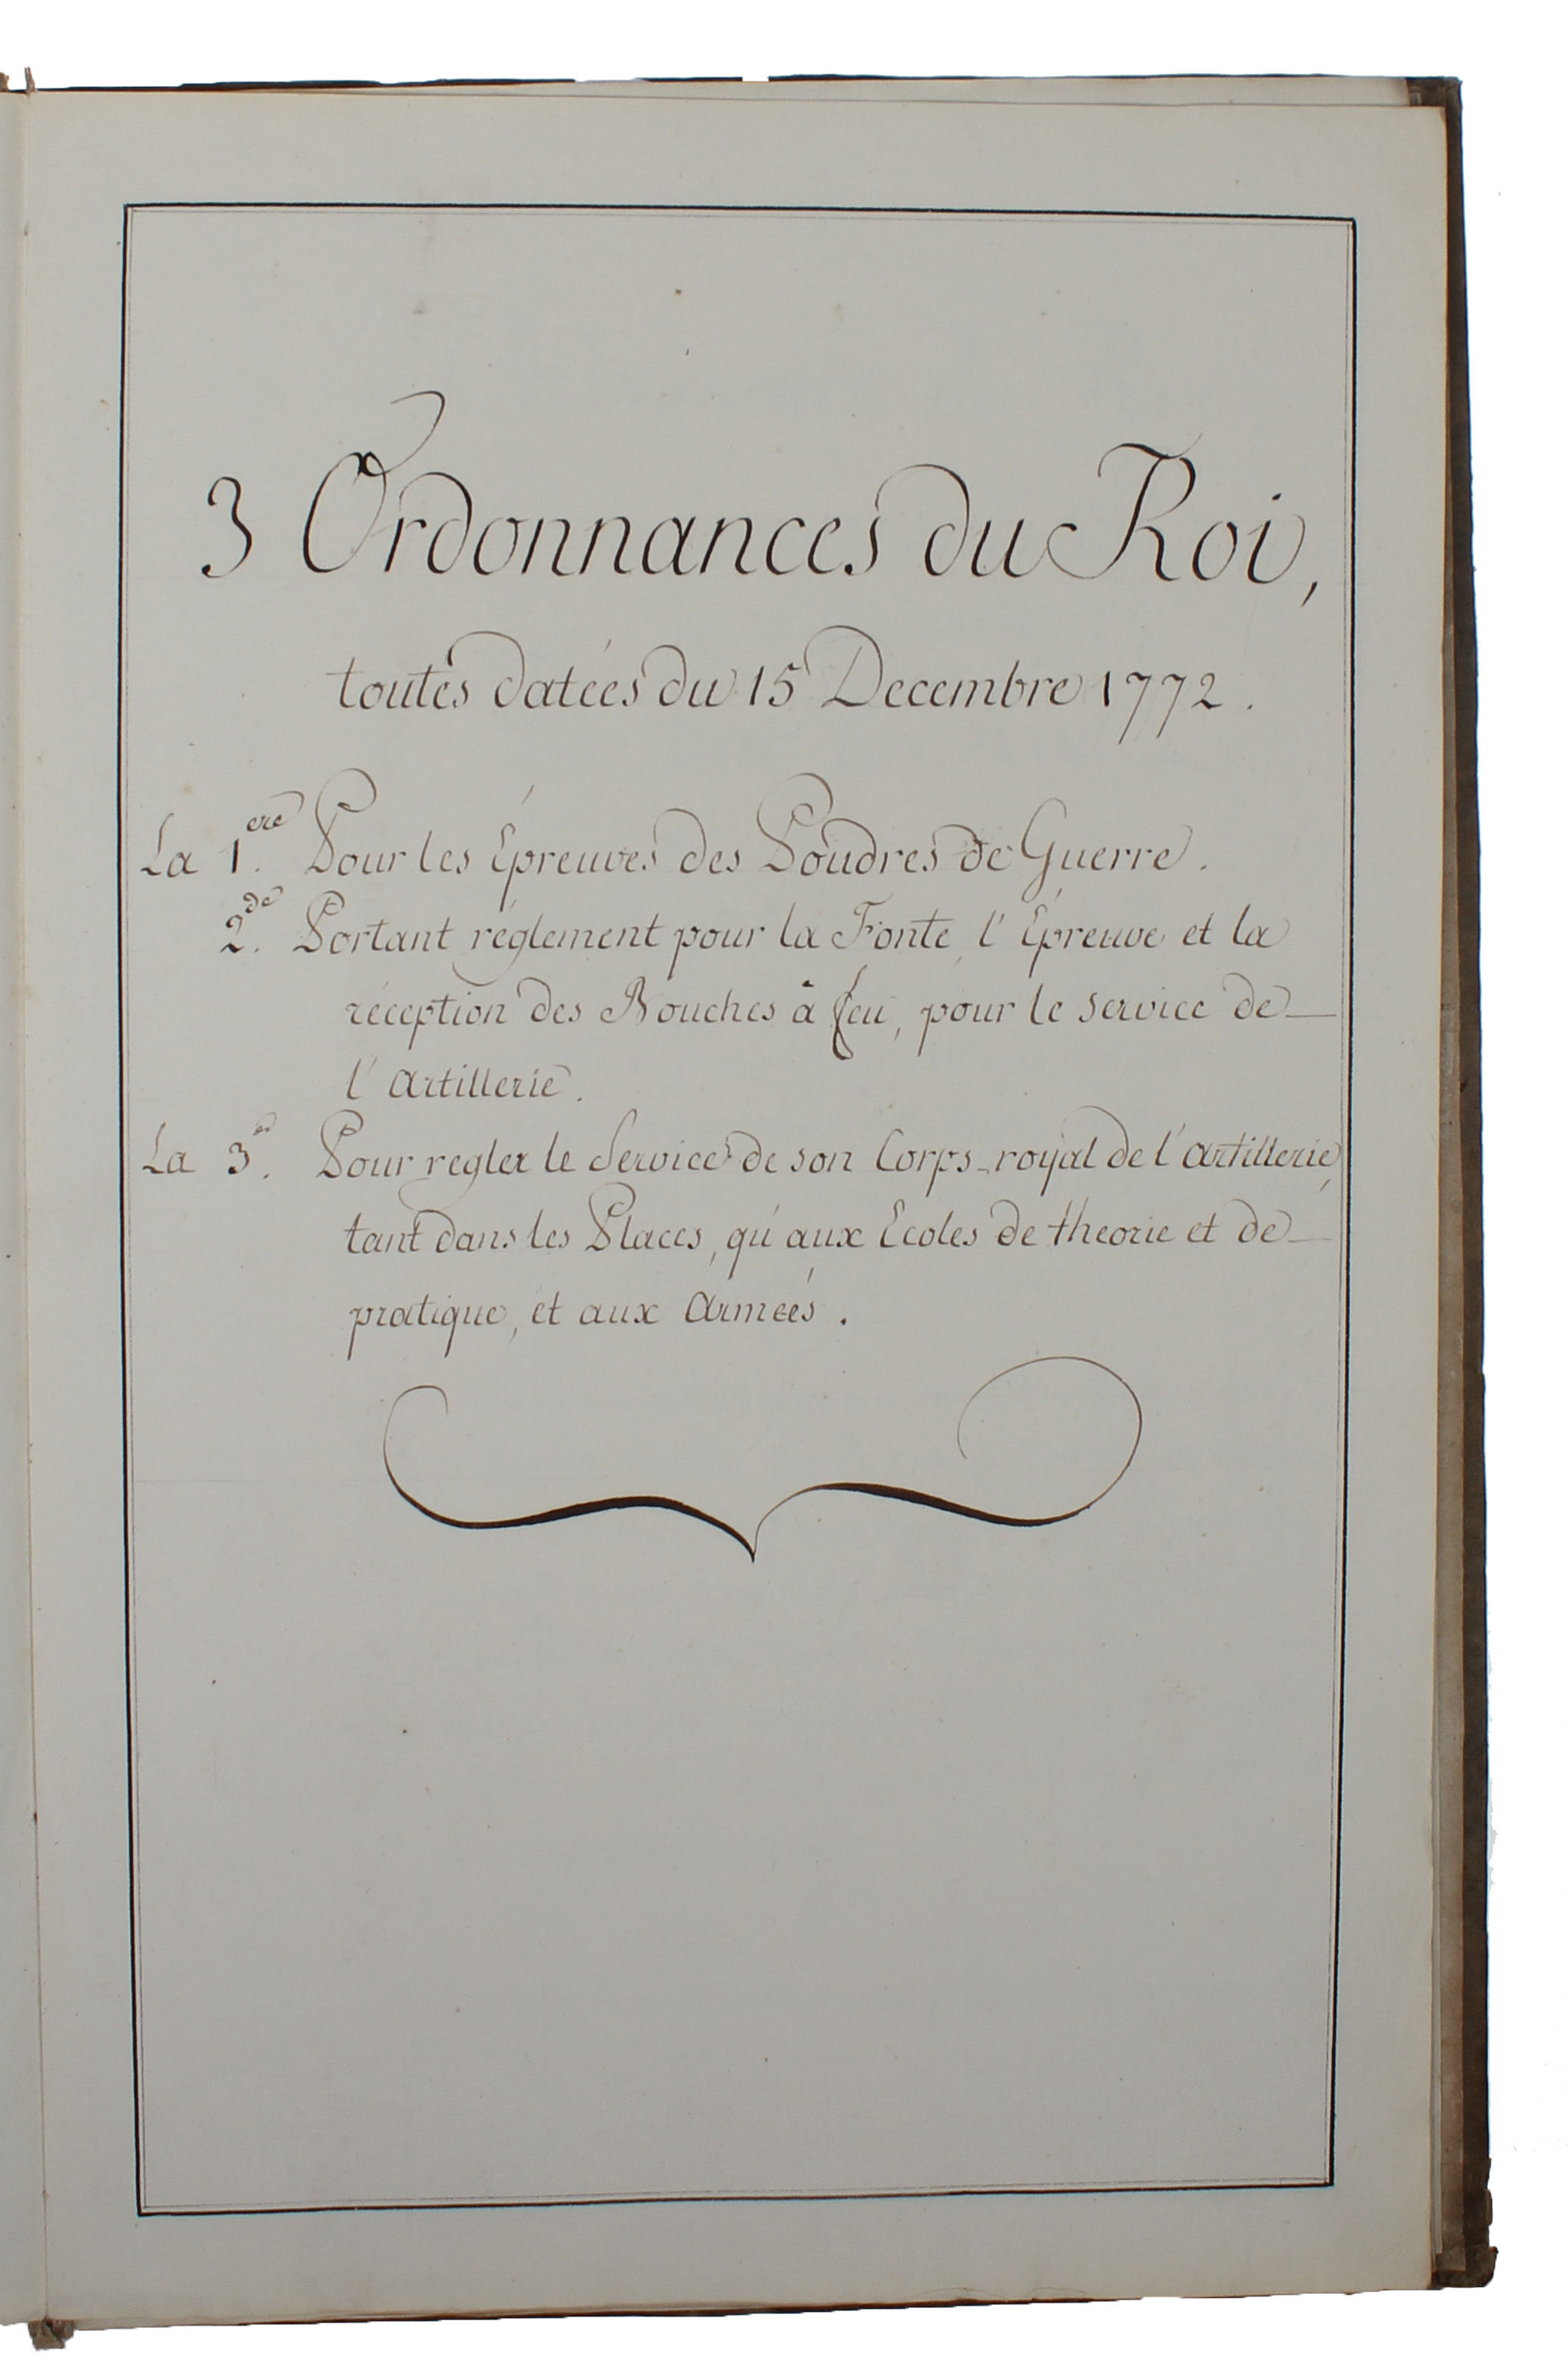 3 Ordonnances du Roi,
toutes datées du 15 Decembre 1772.
La 1.ere Pour les Épreuves des Poudres de Guerre.
2.de Portant réglement pour la Fonte, l'Épreuve et la
réception des Bouches à feu, pour le service de
l'Artillerie.
La 3.e Pour regler le Service de son Corps-royal de l'Artillerie,
tant dans les Places, qu'aux Ecoles de theorie et de
pratique, et aux Armées.